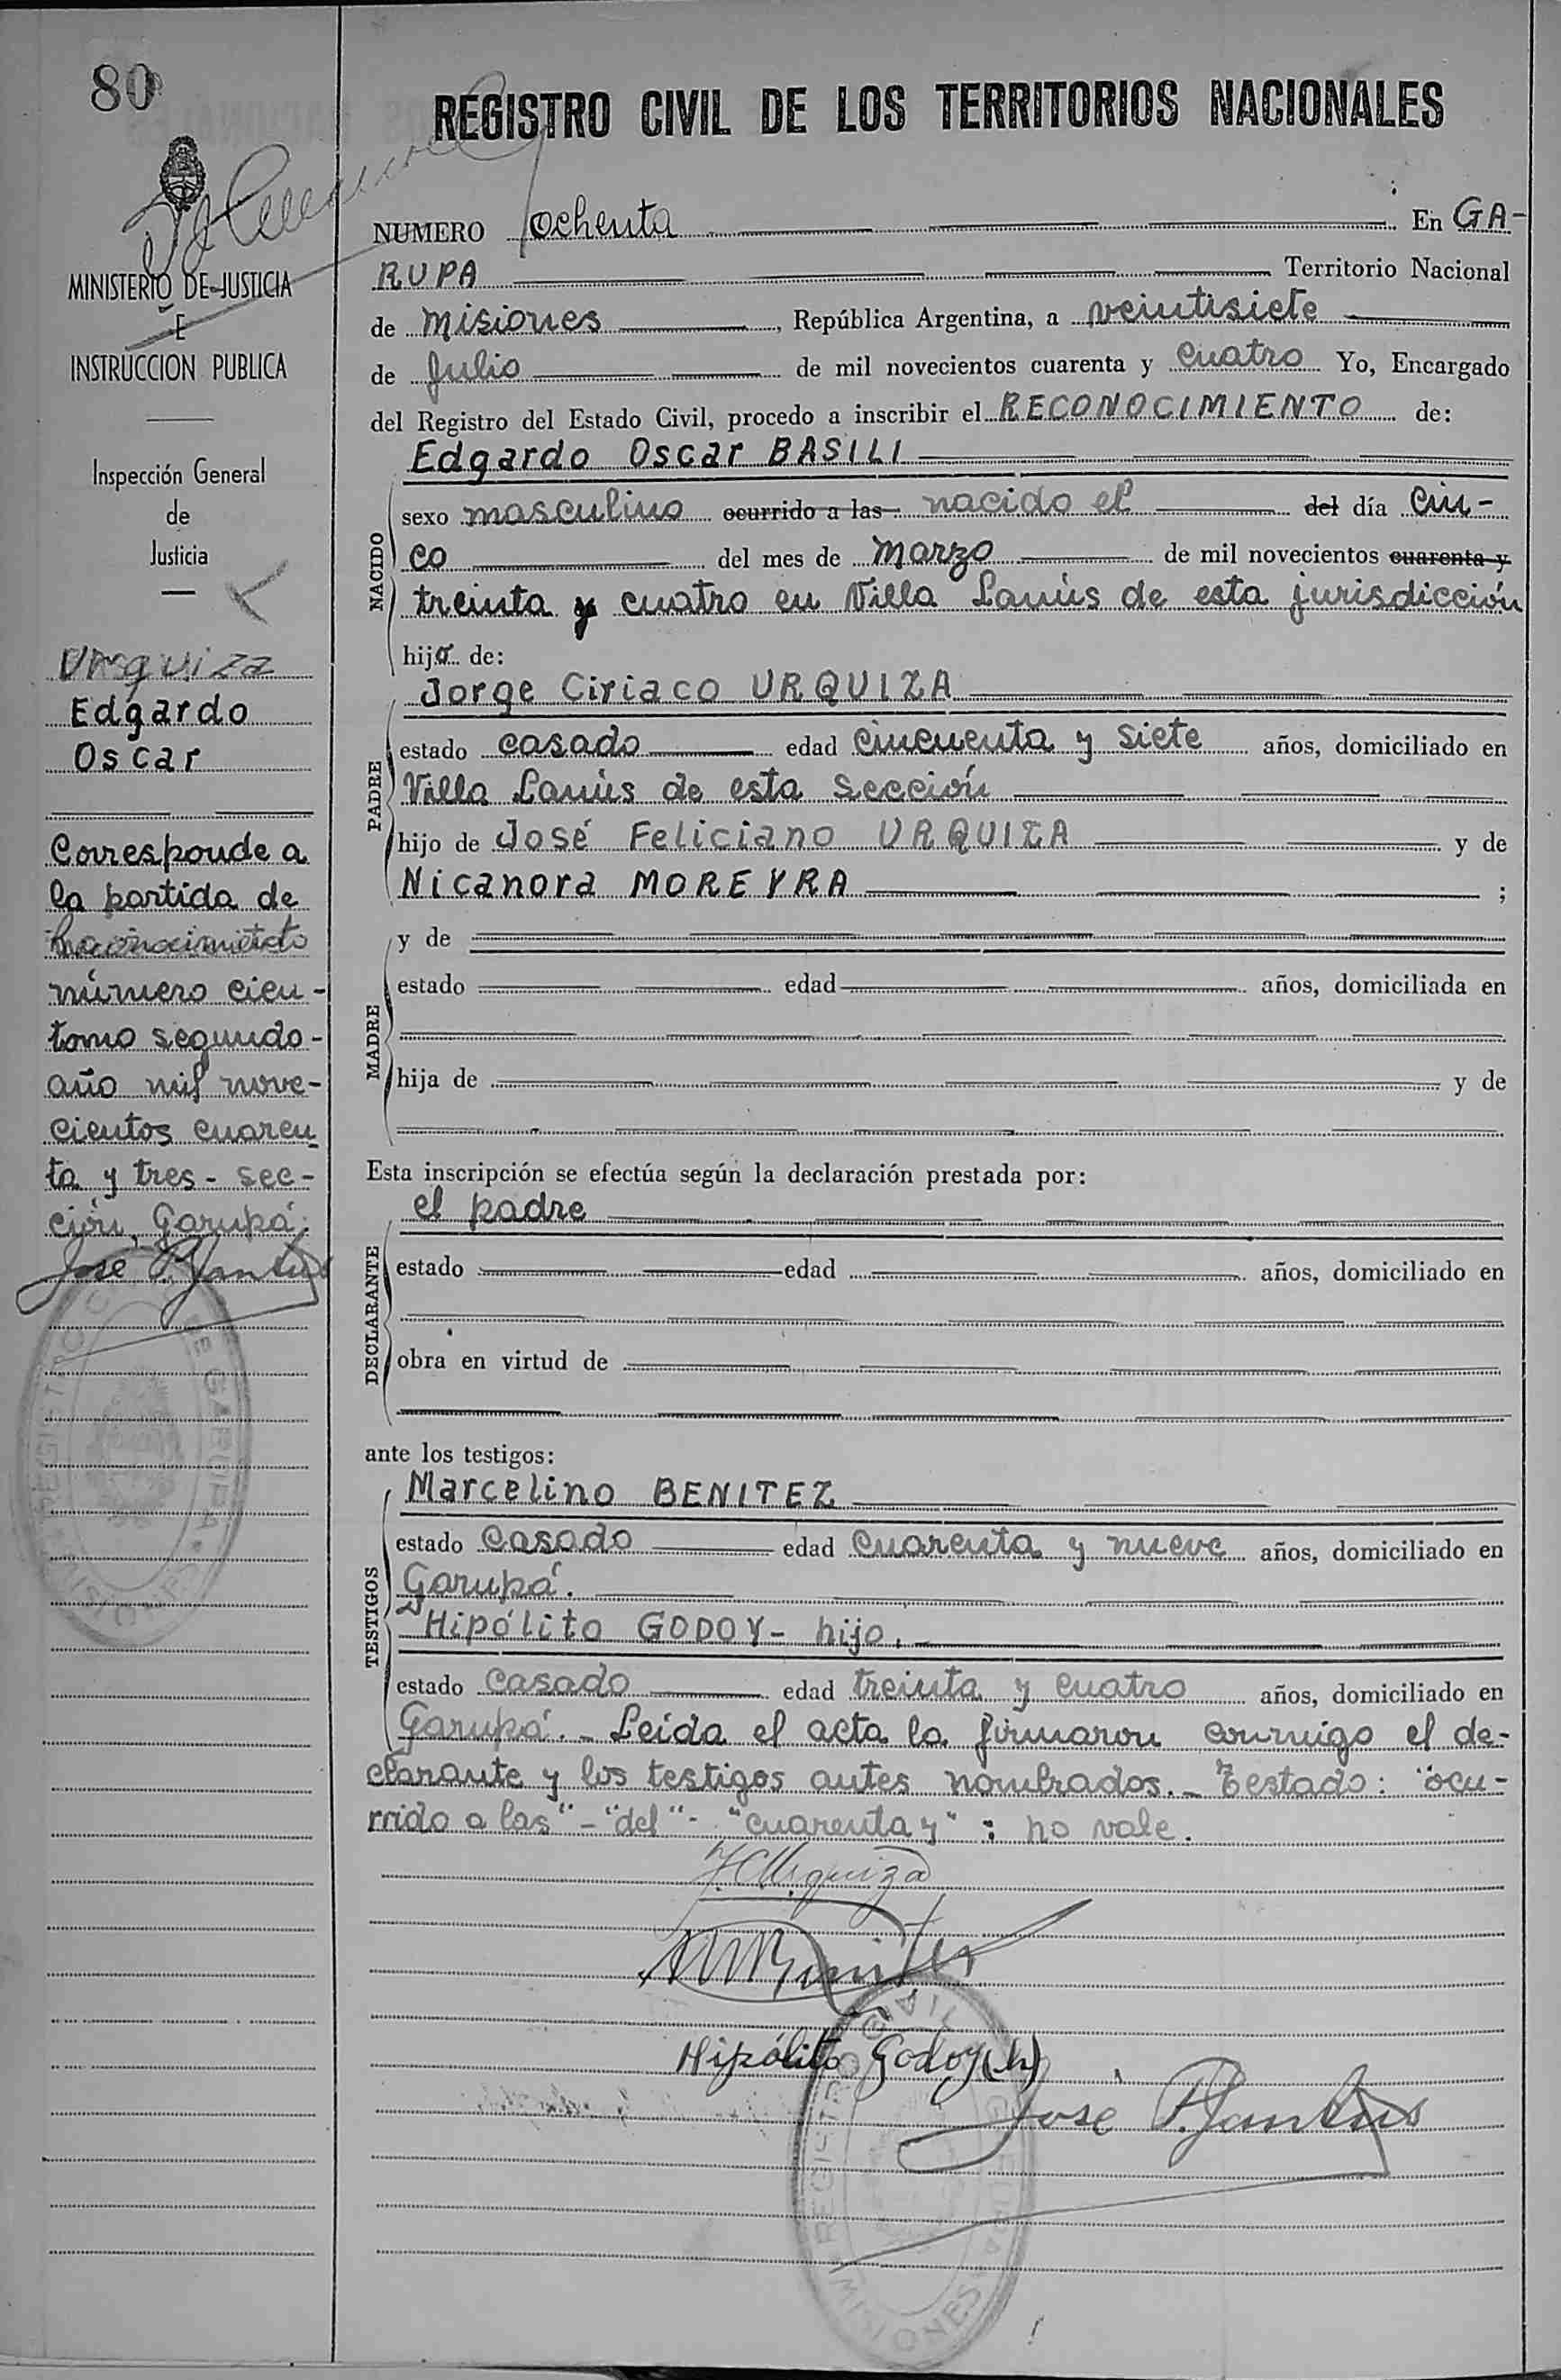 80
MINISTERIO DE JUSTICIA
E
INSTRUCCION PUBLICA
Inspección General
de
Justicia
Urquiza
Edgardo
Oscar
Corresponde a
la partida de
Reconocimiento
número cien-
tomo segundo-
año mil nove-
cientos cuaren
ta y tres - sec-
ción, Garupá.
REGISTRO CIVIL DE LOS TERRITORIOS NACIONALES
NUMERO ochenta En GA-
RUPA Territorio Nacional
de Misiones, República Argentina, a veintisiete
de Julio de mil novecientos cuarenta y cuatro Yo, Encargado
del Registro del Estado Civil, procedo a inscribir el RECONOCIMIENTO de:
Edgardo Oscar BASILI
NACIDO
sexo masculino ocurrido a las nacido el del día cin-
co del mes de marzo de mil novecientos cuarenta y
treinta y cuatro en Villa Lanús de esta jurisdicción
hijo de:
PADRE
Jorge Ciriaco URQUIZA
estado casado edad cincuenta y siete años, domiciliado en
Villa Lanús de esta sección
hijo de José Feliciano URQUIZA y de
Nicanora MOREYRA ;
MADRE
y de
estado edad años, domiciliada en
hija de y de
Esta inscripción se efectúa según la declaración prestada por:
DECLARANTE
el padre
estado edad años, domiciliado en
obra en virtud de
ante los testigos:
TESTIGOS
Marcelino BENITEZ
estado casado edad cuarenta y nueve años, domiciliado en
Garupá.
Hipólito GODOY - hijo.
estado casado edad treinta y cuatro años, domiciliado en
Garupá. - Leida el acta la firmaron conmigo el de-
clarante y los testigos antes nombrados. - Testado: "ocu-
rrido a las" - "del" - "cuarenta y" : no vale.
J. C. Urquiza
Hipólito Godoy (h)
José